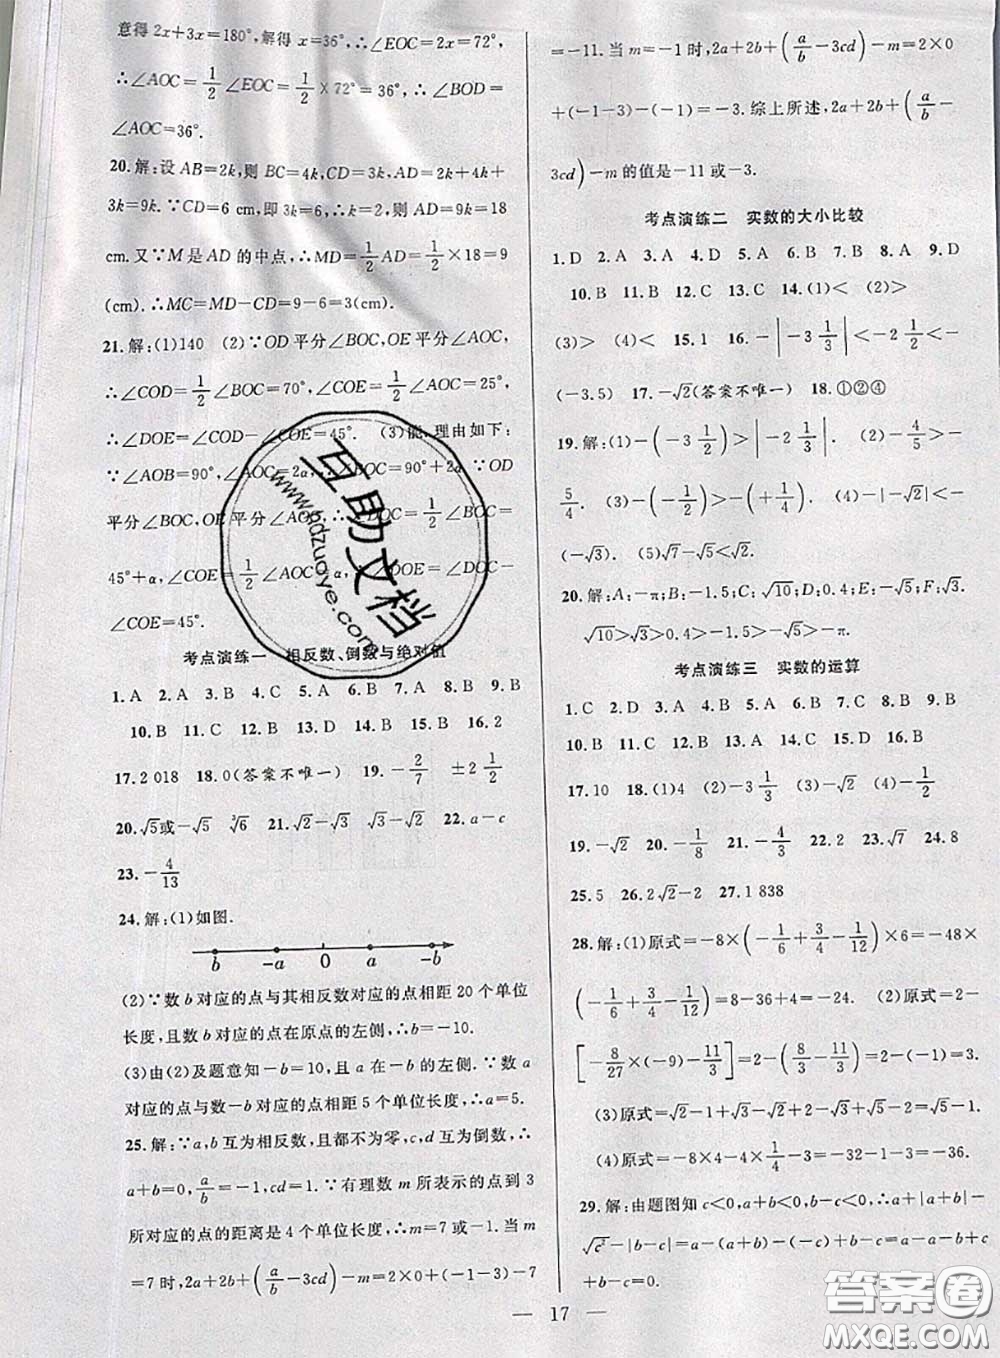 意得 2x+3x=180°,解得 x=36°,∴∠EOC=2x=72°,
∴∠AOC=1/2∠EOC=1/2×72°=36°,∴∠BOD=
∠AOC=36°.
20.解:设 AB=2k,则 BC=4k,CD=3k,AD=2k+4k+
3k=9k.∵CD=6 cm,即 3k=6,∴k=2,则 AD=9k=18
cm.又∵M 是 AD 的中点,∴MD=1/2AD=1/2×18=9
(cm).∴MC=MD-CD=9-6=3(cm).
21.解:(1)140 (2)∵OD 平分∠BOC,OE 平分∠AOC,
∴∠COD=1/2∠BOC=70°,∠COE=1/2∠AOC=25°,
∴∠DOE=∠COD-∠COE=45°. (3)能,理由如下:
∵∠AOB=90°,∠AOC=2α,∴∠BOC=90°+2α.∵OD
平分∠BOC,OE 平分∠AOC,∴∠DOC=1/2∠BOC=
45°+α,∠COE=1/2∠AOC=α,∴∠DOE=∠DOC-
∠COE=45°.
考点演练一 相反数、倒数与绝对值
1.A 2.A 3.B 4.C 5.A 6.B 7.A 8.B 9.B
10.B 11.C 12.B 13.D 14.B 15.B 16.2
17.2 018 18.0(答案不唯一) 19.-2/7 ±2 1/2
20.√5或-√5 ∛6 21.√2-√3 √3-√2 22.a-c
23.-4/13
24.解:(1)如图.
b -a 0 a -b
(2)∵数 b 对应的点与其相反数对应的点相距 20 个单位
长度,且数 b 对应的点在原点的左侧,∴b=-10.
(3)由(2)及题意知-b=10,且 a 在-b 的左侧.∵数 a
对应的点与数-b 对应的点相距 5 个单位长度,∴a=5.
25.解:∵a,b 互为相反数,且都不为零,c,d 互为倒数,∴
a+b=0,a/b=-1,cd=1.∵有理数 m 所表示的点到 3
所对应的点的距离是 4 个单位长度,∴m=7 或-1.当 m
=7 时,2a+2b+(a/b-3cd)-m=2×0+(-1-3)-7
=-11.当 m=-1 时,2a+2b+(a/b-3cd)-m=2×0
+(-1-3)-(-1)=-3.综上所述,2a+2b+(a/b-
3cd)-m 的值是-11 或-3.
考点演练二 实数的大小比较
1.D 2.A 3.A 4.A 5.A 6.B 7.B 8.A 9.D
10.B 11.B 12.C 13.C 14.(1)< (2)>
(3)> (4)< 15.1 16.-|-3 1/3|<-2 1/2<-
(-3.5) 17.-√2(答案不唯一) 18.①②④
19.解:(1)-(-3 1/2)>|-2 1/3|. (2)-4/5>-
5/4. (3)-(-1/2)>-(+1/4). (4)-|-√2|<-
(-√3). (5)√7-√5<√2.
20.解:A:-π;B:-1.5;C:√10;D:0.4;E:-√5;F:√3.
√10>√3>0.4>-1.5>-√5>-π.
考点演练三 实数的运算
1.C 2.D 3.A 4.B 5.A 6.B 7.C 8.D 9.B
10.B 11.B 12.B 13.B 14.D 15.A 16.B
17.10 18.(1)4 (2)-3 1/3 (3)-√2 (4)-1/2
19.-√2 20.-1/8 21.-4/3 22.2 23.√7 24.8
25.5 26.2√2-2 27.1 838
28.解:(1)原式=-8×(-1/6+3/4-1/12)×6=-48×
(-1/6+3/4-1/12)=8-36+4=-24. (2)原式=2-
[-8/27×(-9)-11/3]=2-(8/3-11/3)=2-(-1)=3.
(3)原式=√2-1+√3-√2+2-√3+√5-2=√5-1.
(4)原式=-8×4-4×1/4-3=-32-1-3=-36.
29.解:由题图知 c<0,a+b<0,b-c>0,∴a+|a+b|-
√c²-|b-c|=a-(a+b)-(-c)-(b-c)=a-a-b+c
+c-b+c
17
互助文档
www.hdzuoye.com
答案圈
MXQE.COM